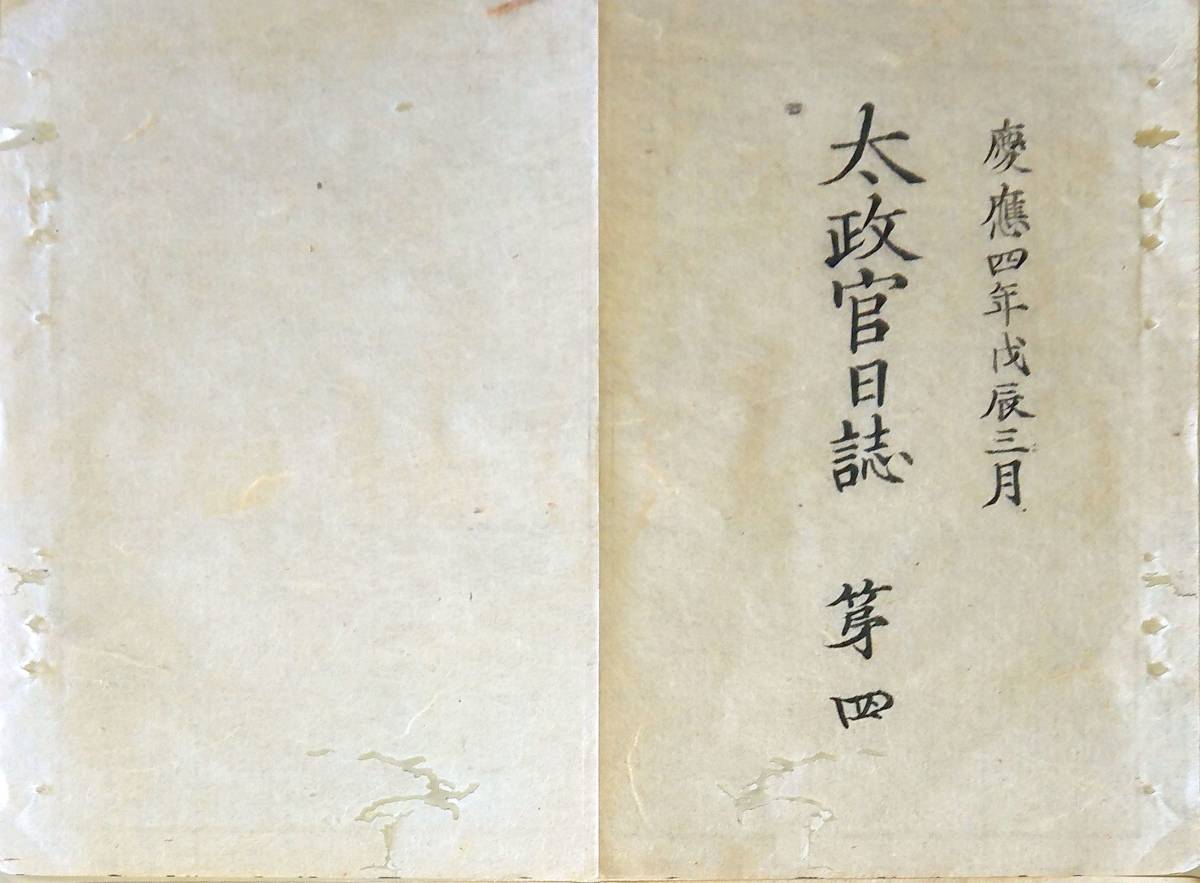 慶應四年戊辰三月
太政官日誌 第四